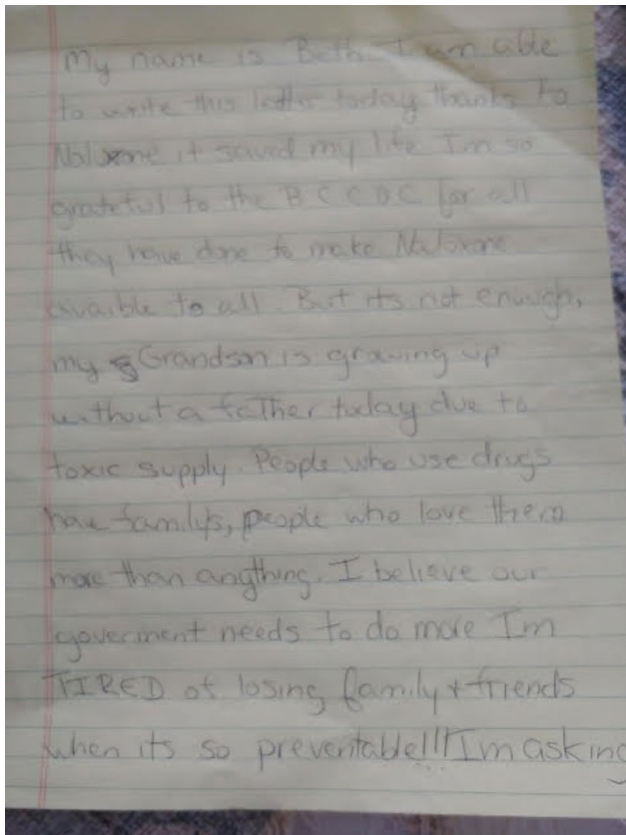 My name is Beth. I am able
to write this letter today thanks to
Naloxone it saved my life Im so
grateful to the BCCDC for all
they have done to make Naloxone
avaible to all. But its not enough,
my Grandson is growing up
without a father today due to
toxic supply. People who use drugs
have familys, people who love them
more than anything. I believe our
goverment needs to do more Im
TIRED of losing family + friends
when its so preventable!!! Im asking